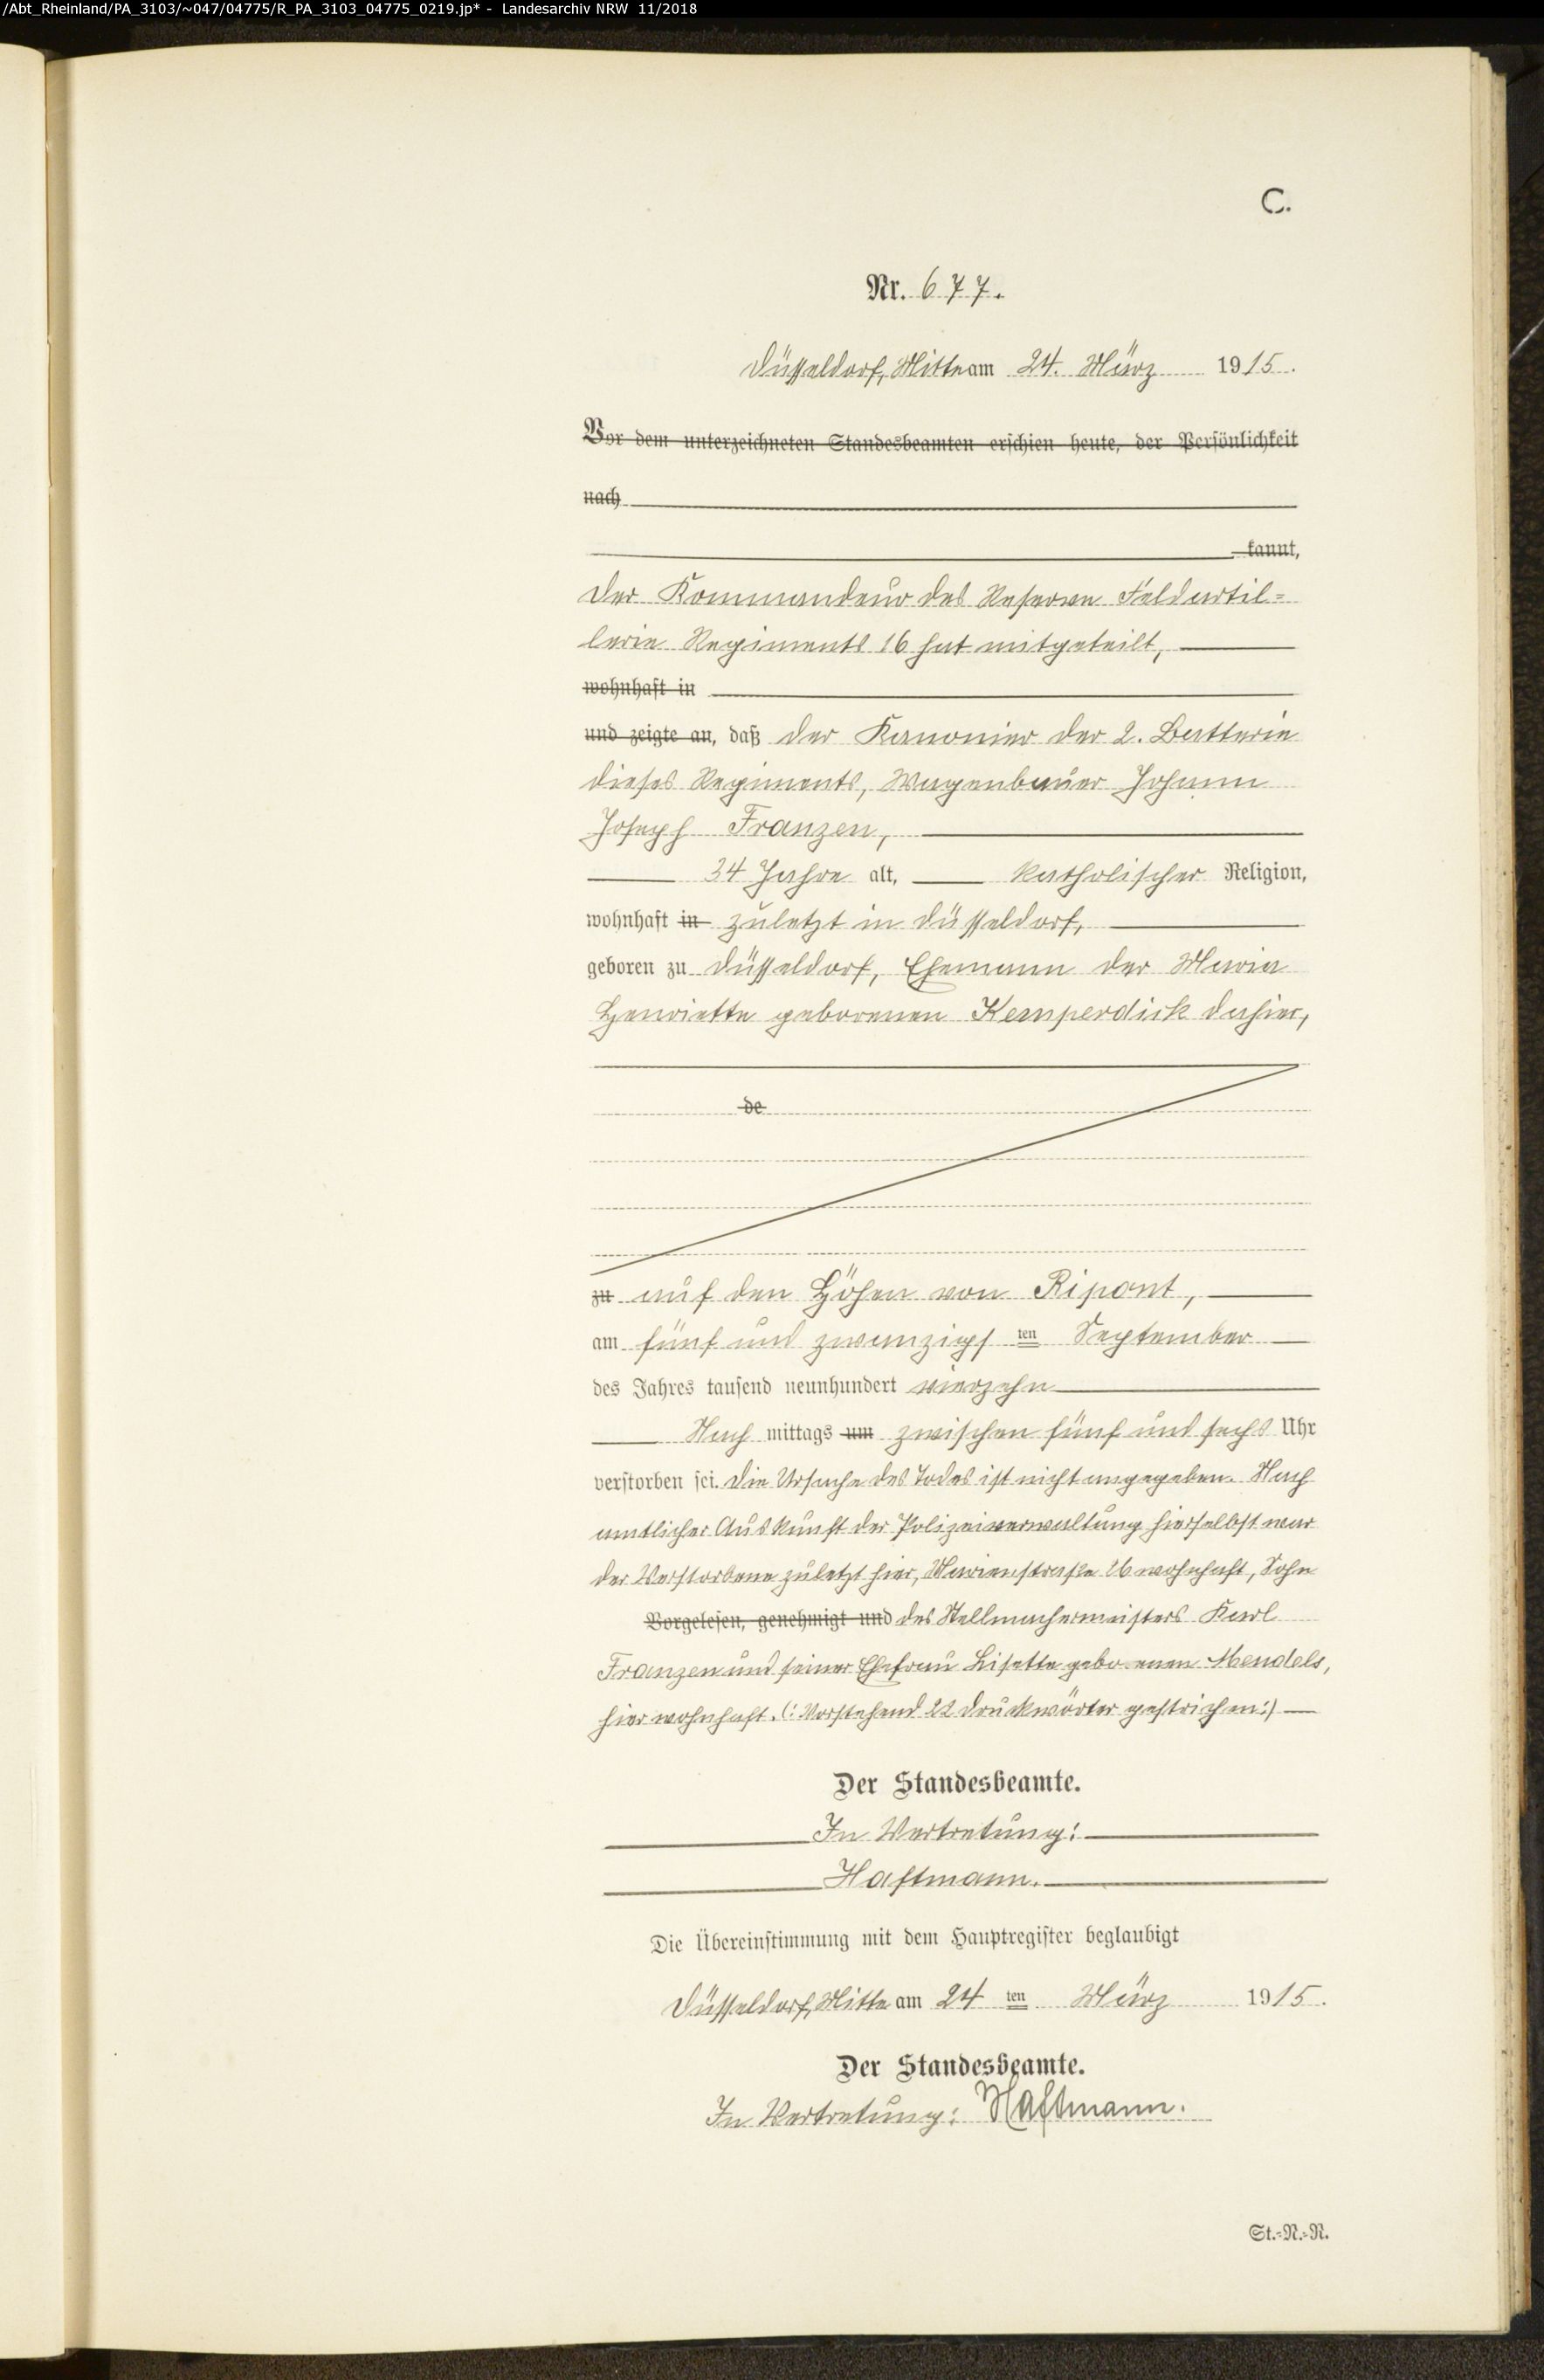 /Abt_Rheinland/PA_3103/~047/04775/R_PA_3103_04775_0219.jp* - Landesarchiv NRW 11/2018
C.
Nr. 677.
Düsseldorf, Mitte am 24. März 1915.
Vor dem unterzeichneten Standesbeamten erschien heute, der Persönlichkeit
nach
kannt,
Der Kommandeur des Reserve Feldartil=
lerie Regiments 16 hat mitgeteilt,
wohnhaft in
und zeigte an, daß der Kanonier der 2. Batterie
dieses Regiments, Wagenbauer Johann
Joseph Franzen,
34 Jahre alt, katholischer Religion,
wohnhaft in zuletzt in Düsseldorf,
geboren zu Düsseldorf, Ehemann der Maria
Henriette geborenen Kemperdick dahier,
de
zu auf den Höhen von Ripont,
am fünf und zwanzigs ten September
des Jahres tausend neunhundert vierzehn
Nach mittags um zwischen fünf und sechs Uhr
verstorben sei. Die Ursache des Todes ist nicht angegeben. Nach
amtlicher Auskunft der Polizeiverwaltung hierselbst war
der Verstorbene zuletzt hier, Marienstraße 26 wohnhaft, Sohn
Vorgelesen, genehmigt und des Stellmachermeisters Karl
Franzen und seiner Ehefrau Lisette geborenen Mendels,
hier wohnhaft. (: Vorstehend 22 Druckwörter gestrichen :)
Der Standesbeamte.
In Vertretung:
Haftmann.
Die Übereinstimmung mit dem Hauptregister beglaubigt
Düsseldorf, Mitte am 24 ten März 1915.
Der Standesbeamte.
In Vertretung: Haftmann.
St.=N.=R.